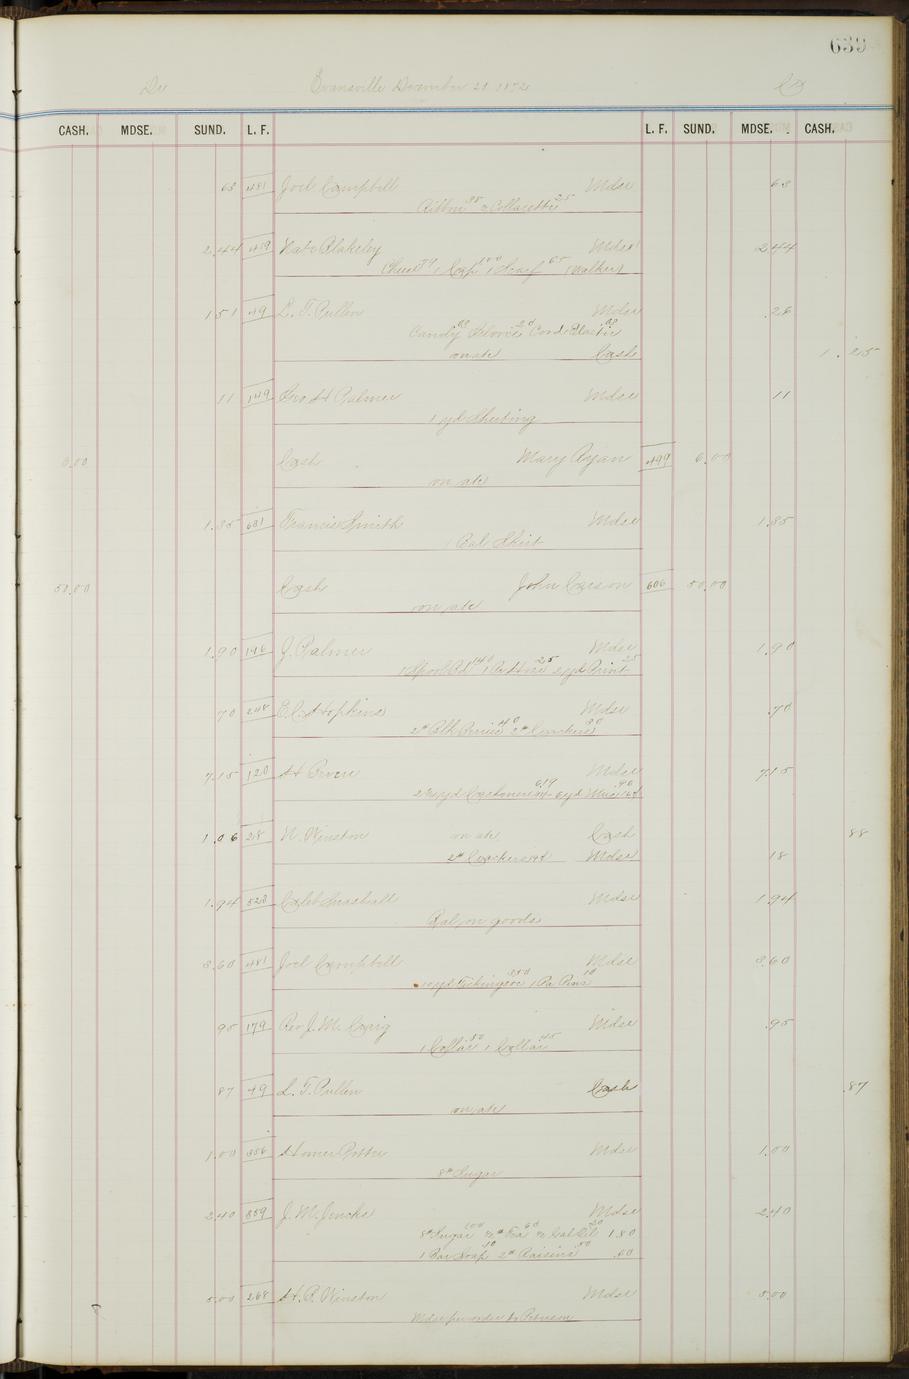 639
Dr Evansville December 21 1872 Cr
CASH. MDSE. SUND. L. F. L. F. SUND. MDSE. CASH.
63 481 Joel Campbell Mdse 63
Ribbon 38 Collarette 25
2.44 419 Kate Blakeley Mdse 2.44
1 Cap 1.00 1 Scarf 65 (Walker)
1.51 49 L. T. Pullen Mdse .26
Candy Cord Elastic
on a/c Cash 1.25
11 149 Geo H Palmer Mdse 11
1 yd Sheeting
6.00 Cash Mary Ryan 499 6.00
on a/c
1.85 631 Francis Smith Mdse 1.85
1 Bal Skirt
50.00 Cash John Carson 606 50.00
on a/c
1.90 146 J. Palmer Mdse 1.90
70 248 E. C. Hopkins Mdse .70
7.15 120 Mdse 7.15
1.06 28 N. Winston on a/c Cash 88
2# Crackers Mdse 18
1.94 528 Caleb Marshall Mdse 1.94
Bal on goods
3.60 481 Joel Campbell Mdse 3.60
10 yd Ticking 1 Pa Pins 10
95 179 Rev J. M. Craig Mdse .95
1 Collar 50 1 Collar 45
87 49 L. T. Pullen Cash .87
on a/c
1.00 356 Homer Potter Mdse 1.00
8# Sugar
2.40 359 J. M. Jencks Mdse 2.40
8# Sugar 1.00 ½# Tea 60 ½ Gal Oil 20 1.80
1 Bar Soap 10 2# Raisins 50 .60
5.00 268 H. B. Winston Mdse 5.00
Mdse per order to